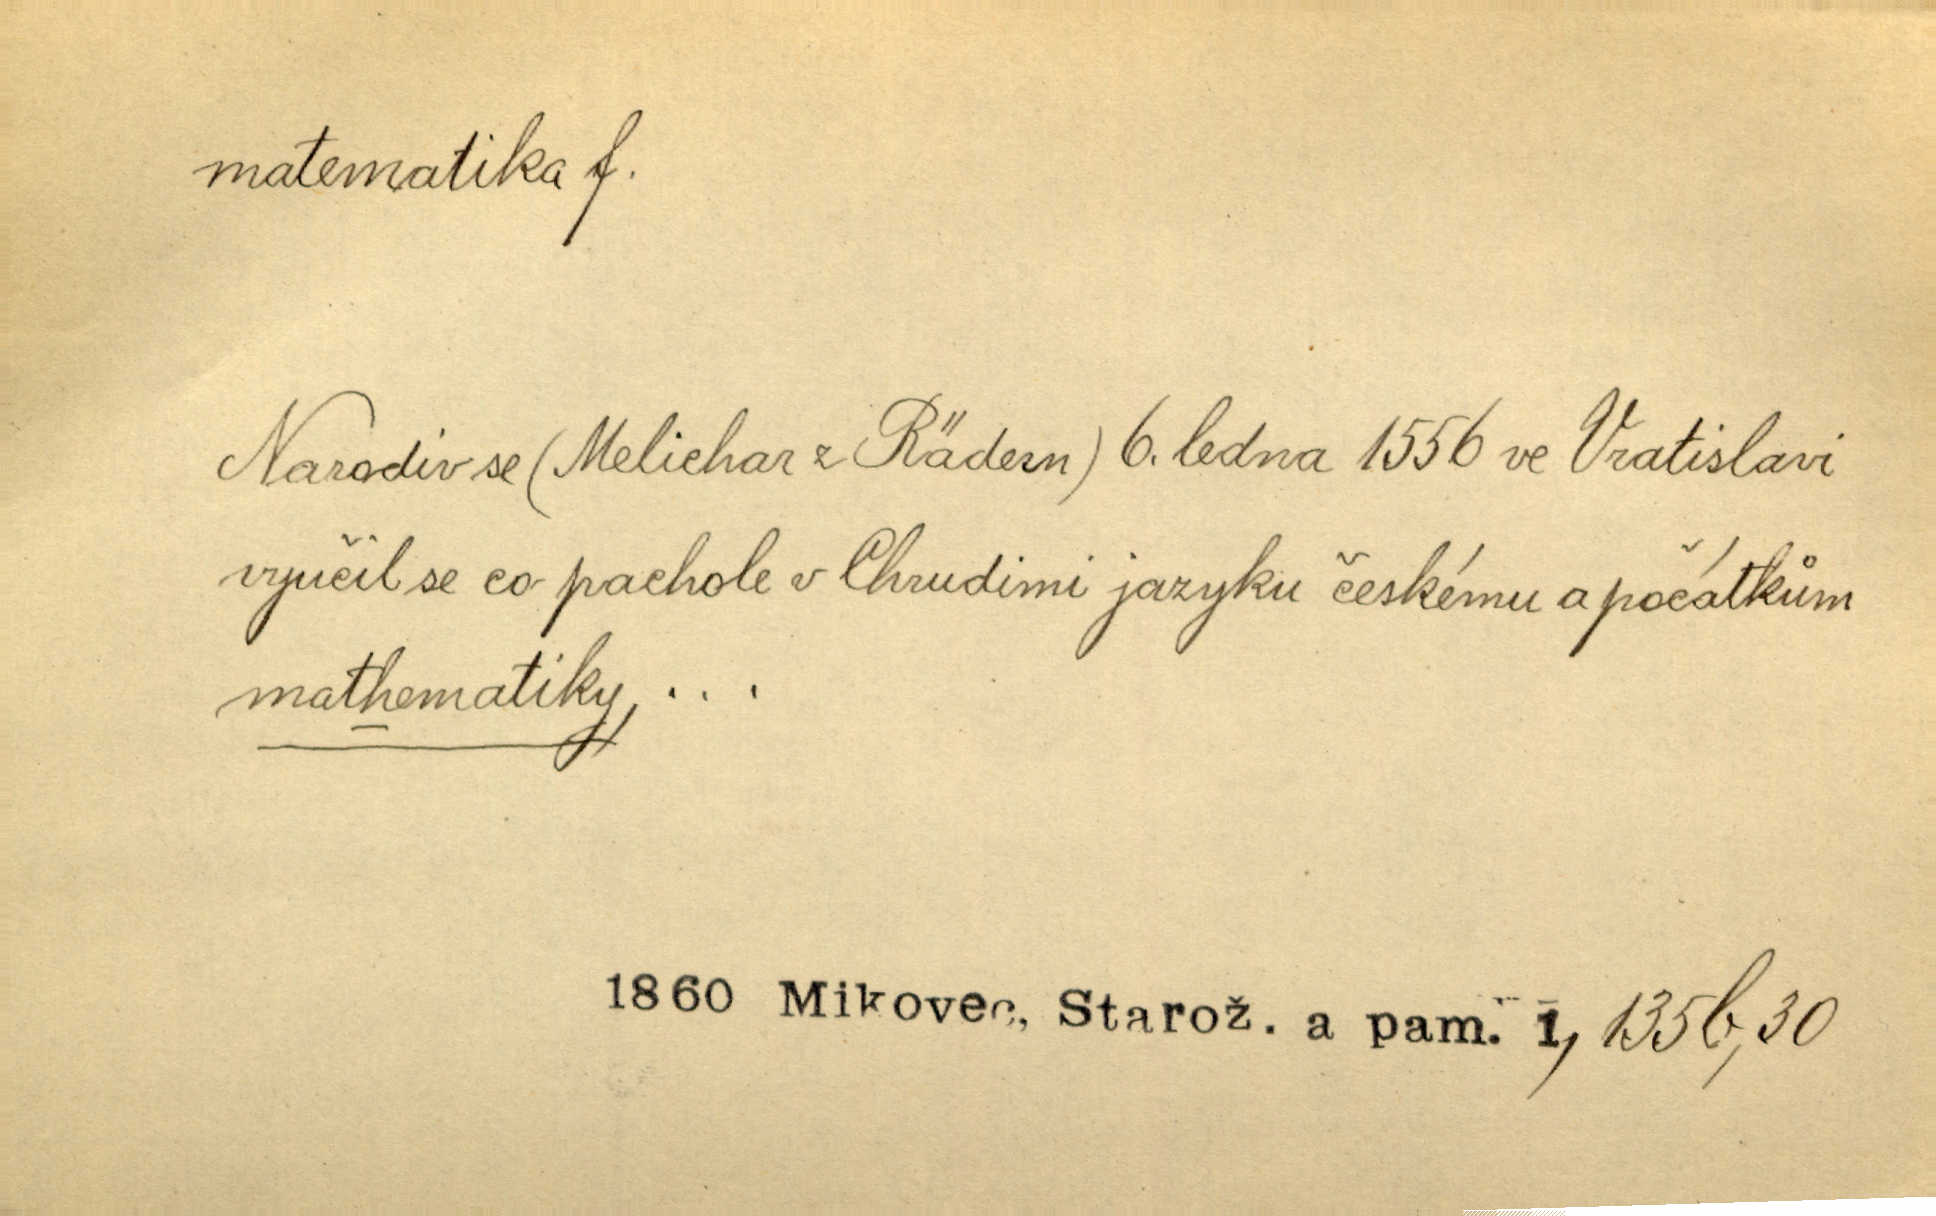 matematika f.
Narodiv se (Melichar z Rädern) 6. ledna 1556 ve Vratislavi
vyučil se co pachole v Chrudimi jazyku českému a počátkům
mathematiky, ...
1860 Mikovec, Starož. a pam. 1, 135b, 30